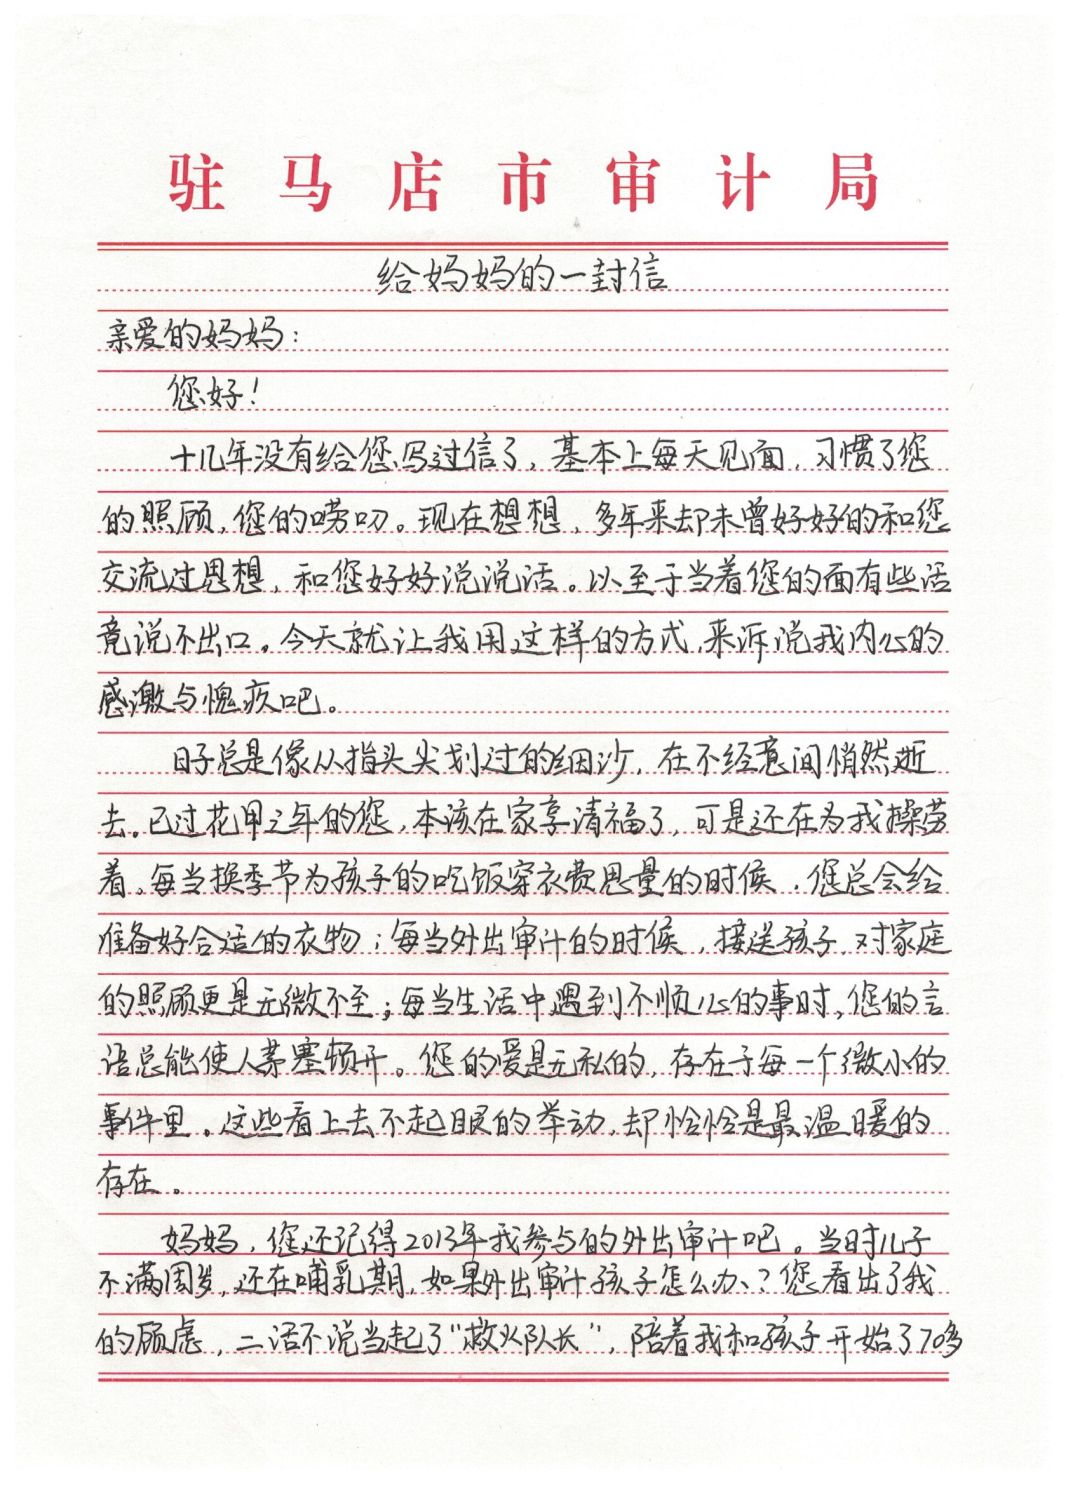 驻马店市审计局
给妈妈的一封信
亲爱的妈妈：
您好！
十几年没有给您写过信了，基本上每天见面，习惯了您
的照顾，您的唠叨。现在想想，多年来却未曾好好的和您
交流过思想，和您好好说说话。以至于当着您的面有些话
竟说不出口。今天就让我用这样的方式，来诉说我内心的
感激与愧疚吧。
日子总是像从指头尖划过的细沙，在不经意间悄然逝
去。已过花甲之年的您，本该在家享清福了，可是还在为我操劳
着。每当换季节为孩子的吃饭穿衣费思量的时候，您总会给
准备好合适的衣物；每当外出审计的时候，接送孩子、对家庭
的照顾更是无微不至；每当生活中遇到不顺心的事时，您的言
语总能使人茅塞顿开。您的爱是无私的，存在于每一个微小的
事件里。这些看上去不起眼的举动，却恰恰是最温暖的
存在。
妈妈，您还记得2013年我参与的外出审计吧。当时儿子
不满周岁，还在哺乳期，如果外出审计孩子怎么办？您看出了我
的顾虑，二话不说当起了“救火队长”，陪着我和孩子开始了70多